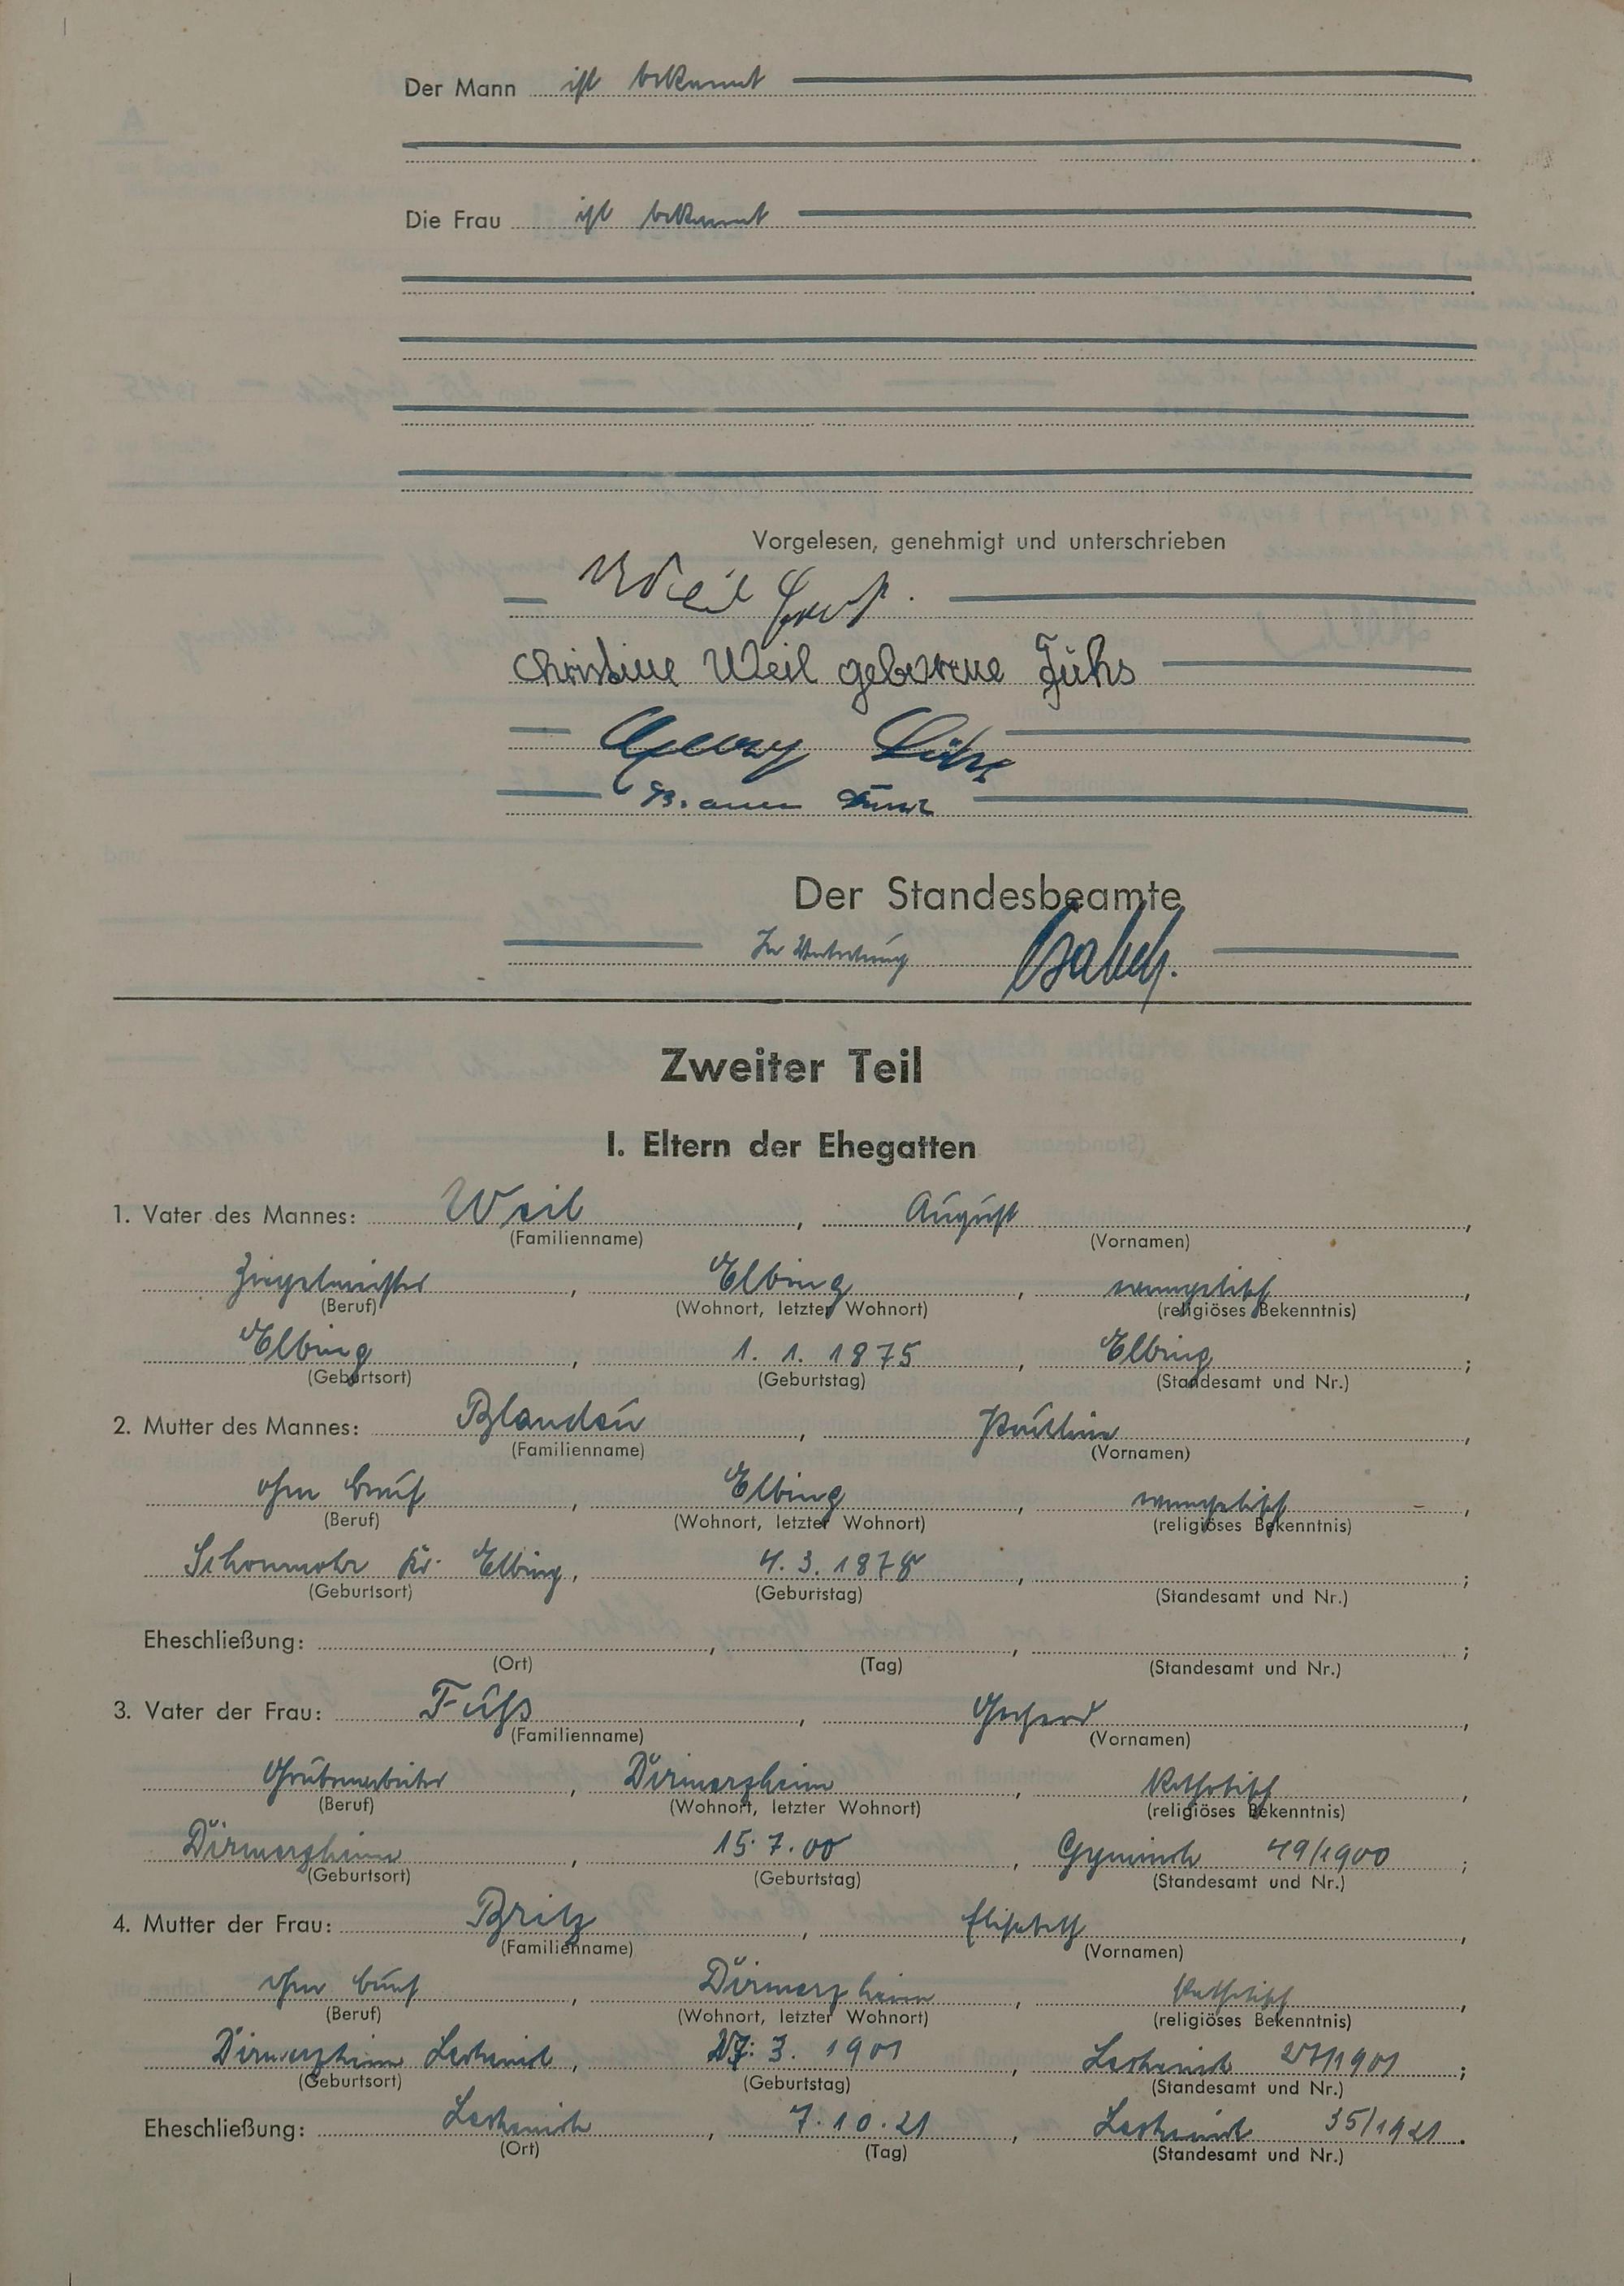 Der Mann ist bekannt
Die Frau ist bekannt
Vorgelesen, genehmigt und unterschrieben
Weil
Christine Weil geborene Fühs
Georg
Der Standesbeamte
In Vertretung
Zweiter Teil
I. Eltern der Ehegatten
1. Vater des Mannes: Weil, August,
(Familienname) (Vornamen)
Ziegelmeister, Elbing, evangelisch,
(Beruf) (Wohnort, letzter Wohnort) (religiöses Bekenntnis)
Elbing, 1. 1. 1875, Elbing;
(Geburtsort) (Geburtstag) (Standesamt und Nr.)
2. Mutter des Mannes: Blandau, Pauline,
(Familienname) (Vornamen)
ohne Beruf, Elbing, evangelisch,
(Beruf) (Wohnort, letzter Wohnort) (religiöses Bekenntnis)
Schonmohr Kr. Elbing, 4. 3. 1878, ;
(Geburtsort) (Geburtstag) (Standesamt und Nr.)
Eheschließung: , , ;
(Ort) (Tag) (Standesamt und Nr.)
3. Vater der Frau: Fühs, Gerhard,
(Familienname) (Vornamen)
Grubenarbeiter, Dirmerzheim, katholisch,
(Beruf) (Wohnort, letzter Wohnort) (religiöses Bekenntnis)
Dirmerzheim, 15. 7. 00, Gymnich 49/1900;
(Geburtsort) (Geburtstag) (Standesamt und Nr.)
4. Mutter der Frau: Britz, Elisabeth,
(Familienname) (Vornamen)
ohne Beruf, Dirmerzheim, katholisch,
(Beruf) (Wohnort, letzter Wohnort) (religiöses Bekenntnis)
Dirmerzheim Lechenich, 3. 1901, Lechenich 27/1901;
(Geburtsort) (Geburtstag) (Standesamt und Nr.)
Eheschließung: Lechenich, 7. 10. 21, Lechenich 35/1921.
(Ort) (Tag) (Standesamt und Nr.)